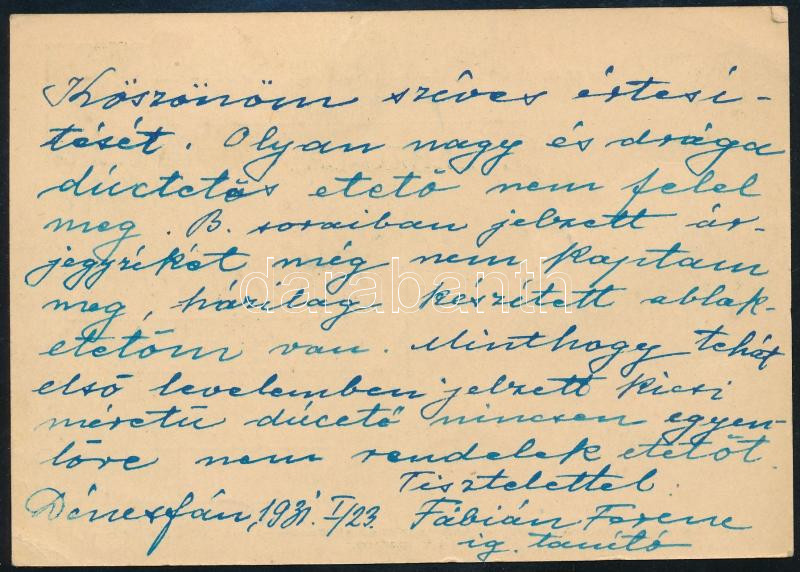 Köszönöm szíves értesí-
tését. Olyan nagy és drága
dúctetős etető nem felel
meg. B. soraiban jelzett ár-
jegyzékét még nem kaptam
meg, házilag készített ablak-
etetőm van. Minthogy tehát
első levelemben jelzett kicsi
méretű dúcető nincsen egyen-
lőre nem rendelek etetőt.
Tisztelettel.
Dénesfán, 1931. I/23. Fábián Ferenc
ig. tanító
darabanth